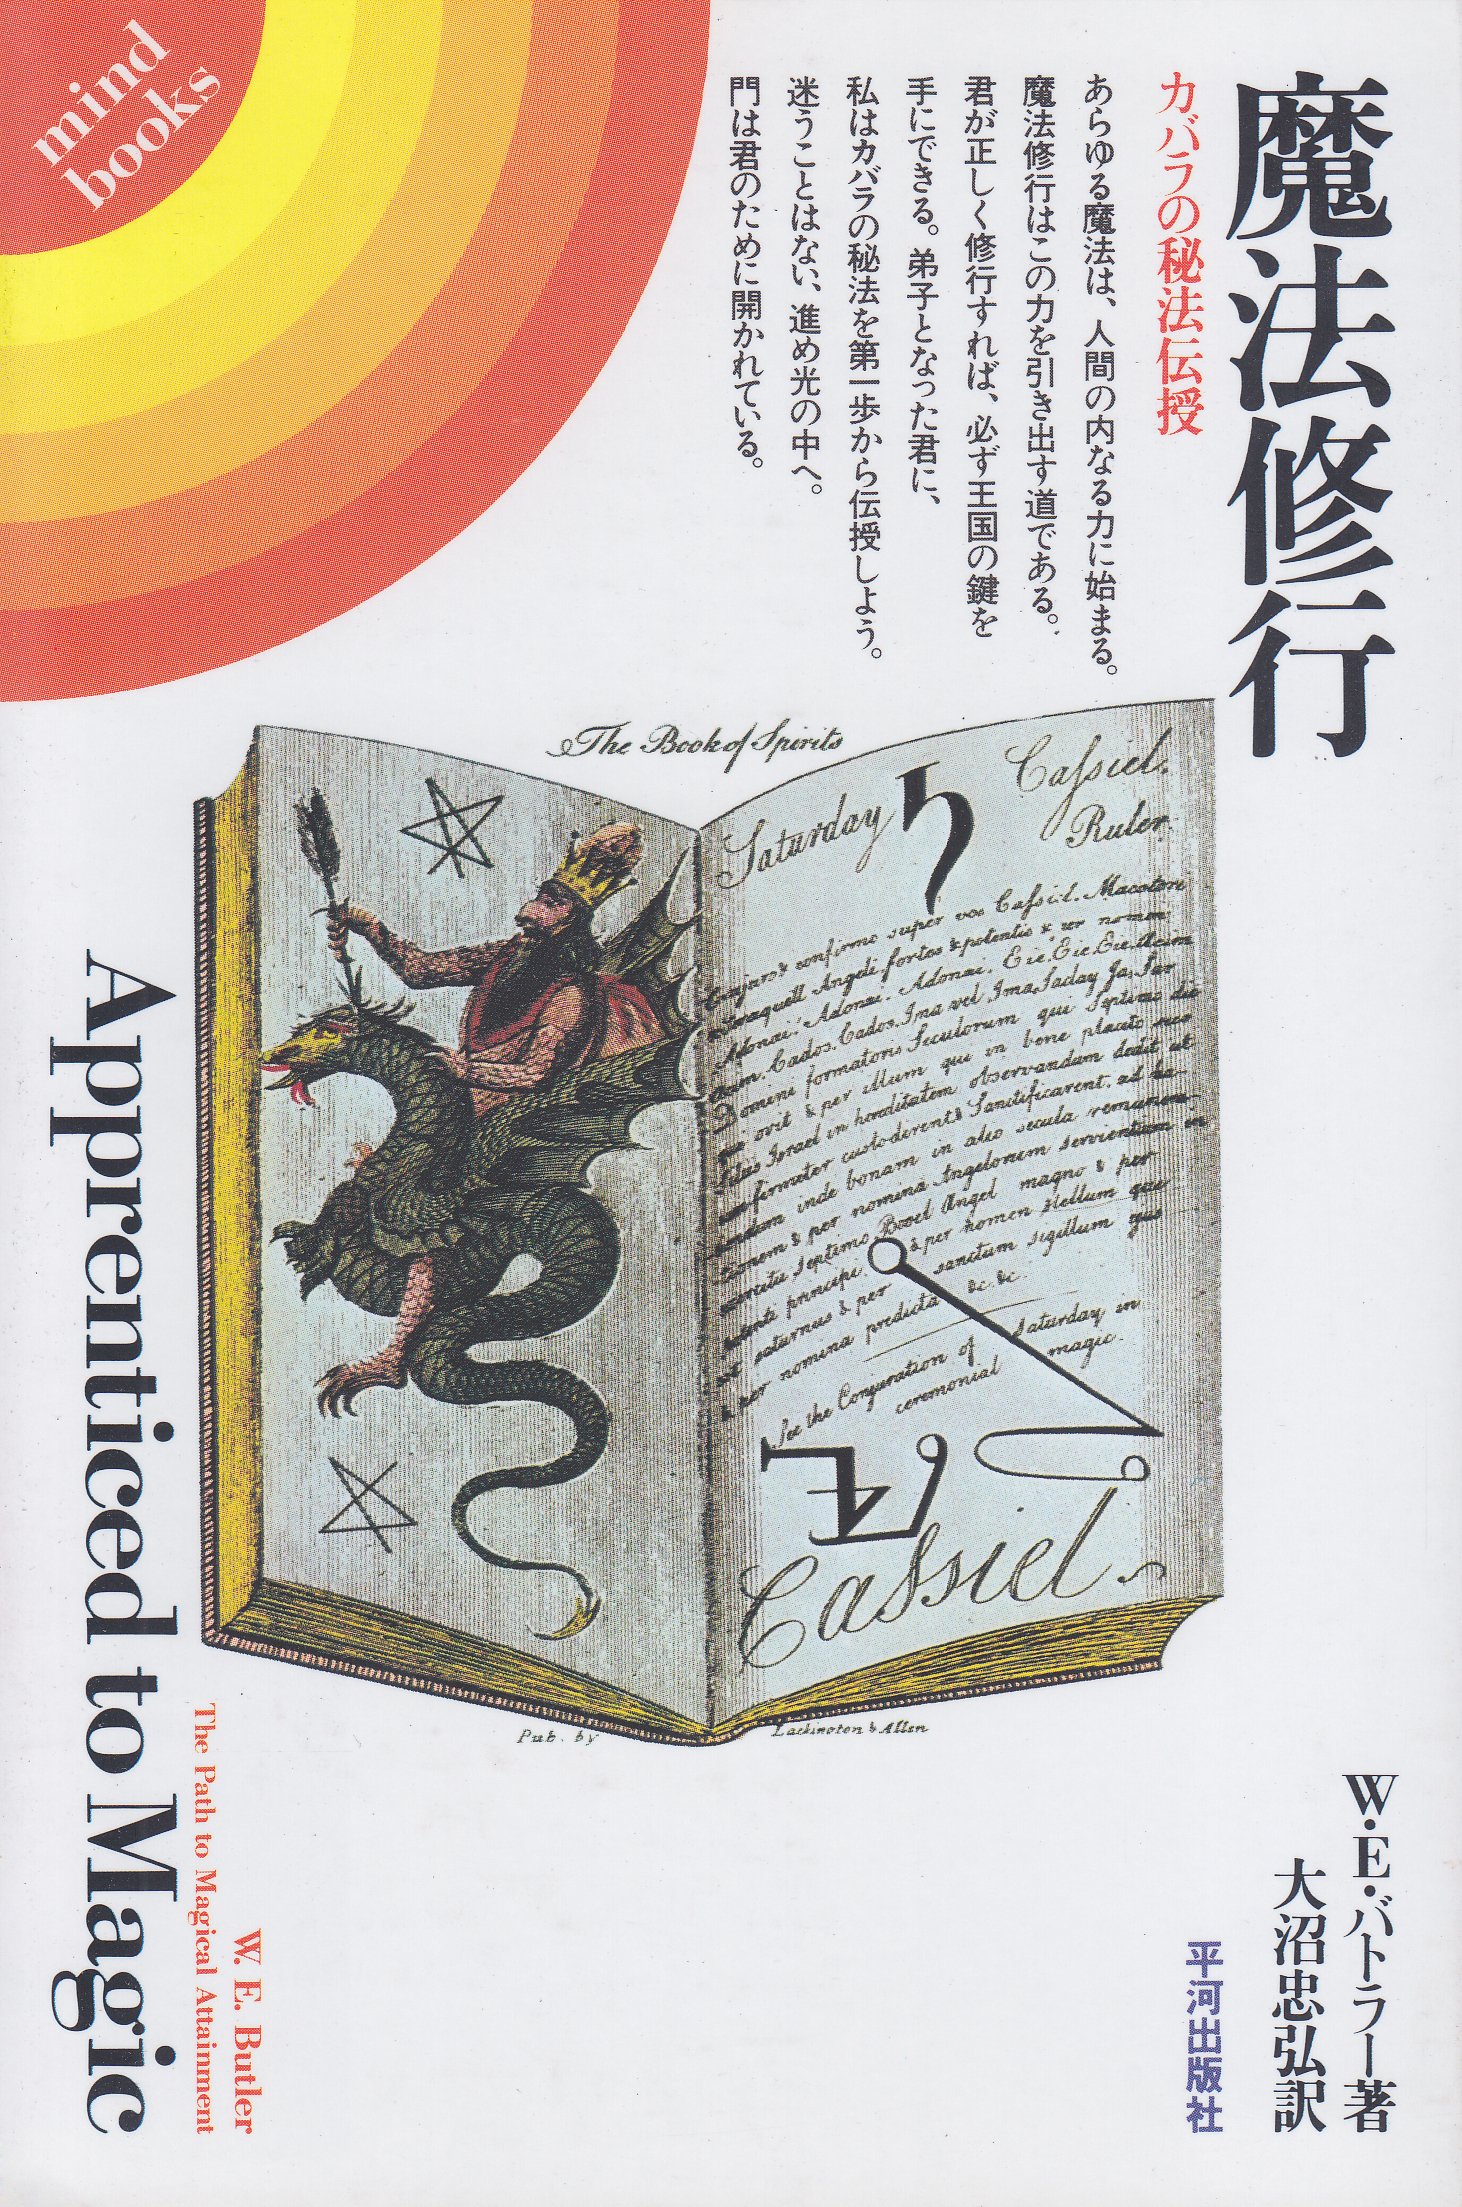 魔法修行
カバラの秘法伝授
あらゆる魔法は、人間の内なる力に始まる。
魔法修行はこの力を引き出す道である。
君が正しく修行すれば、必ず王国の鍵を
手にできる。弟子となった君に、
私はカバラの秘法を第一歩から伝授しよう。
迷うことはない、進め光の中へ。
門は君のために開かれている。
mind
books
The Book of Spirits
Saturday ♄ Cassiel
Ruler
Conjuro & confirmo super vos Cassiel. Macatori
Seraquiell Angeli fortes & potentis & per nomen
Adonai. Adonai. Adonai. Eie. Eie. Eie. Acim
Acim. Cados. Cados. Ima vel Ima. Saday Ja. Sar
Domini formatoris Seculorum qui Septimo die
qui ovit & per illum qui in bene placito suo
filius Israel in hereditatem observandum dedit ut
firmiter custodirent & Sanctificarent. ad ha-
inde bonam in alio secula remunera-
tionem & per nomina Angelorum servientium in
Septimo Booel Angel magno &
principi & per nomen stellum que
saturnus & per sanctum sigillum que
& per nomina predicta &c. &c.
See the Conjuration of Saturday in
ceremonial magic.
Cassiel.
Pub. by Lackington & Allen
W・E・バトラー著
大沼忠弘訳
平河出版社
Apprenticed to Magic
The Path to Magical Attainment
W. E. Butler